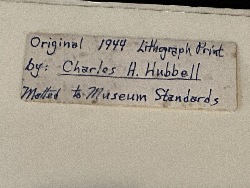 Original 1944 Lithograph Print
by: Charles H. Hubbell
Matted to Museum Standards